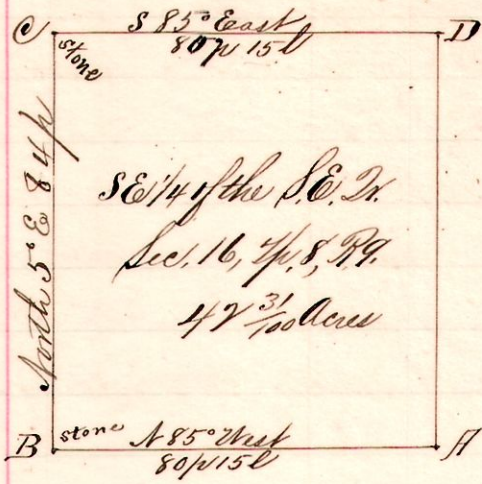 C S 85° East D
80p 15l
stone
North 5° E 84p
SE 1/4 of the S.E. Qr.
Sec. 16, Tp. 8, R9.
42 31/100 Acres
B stone N 85° West A
80p 15l